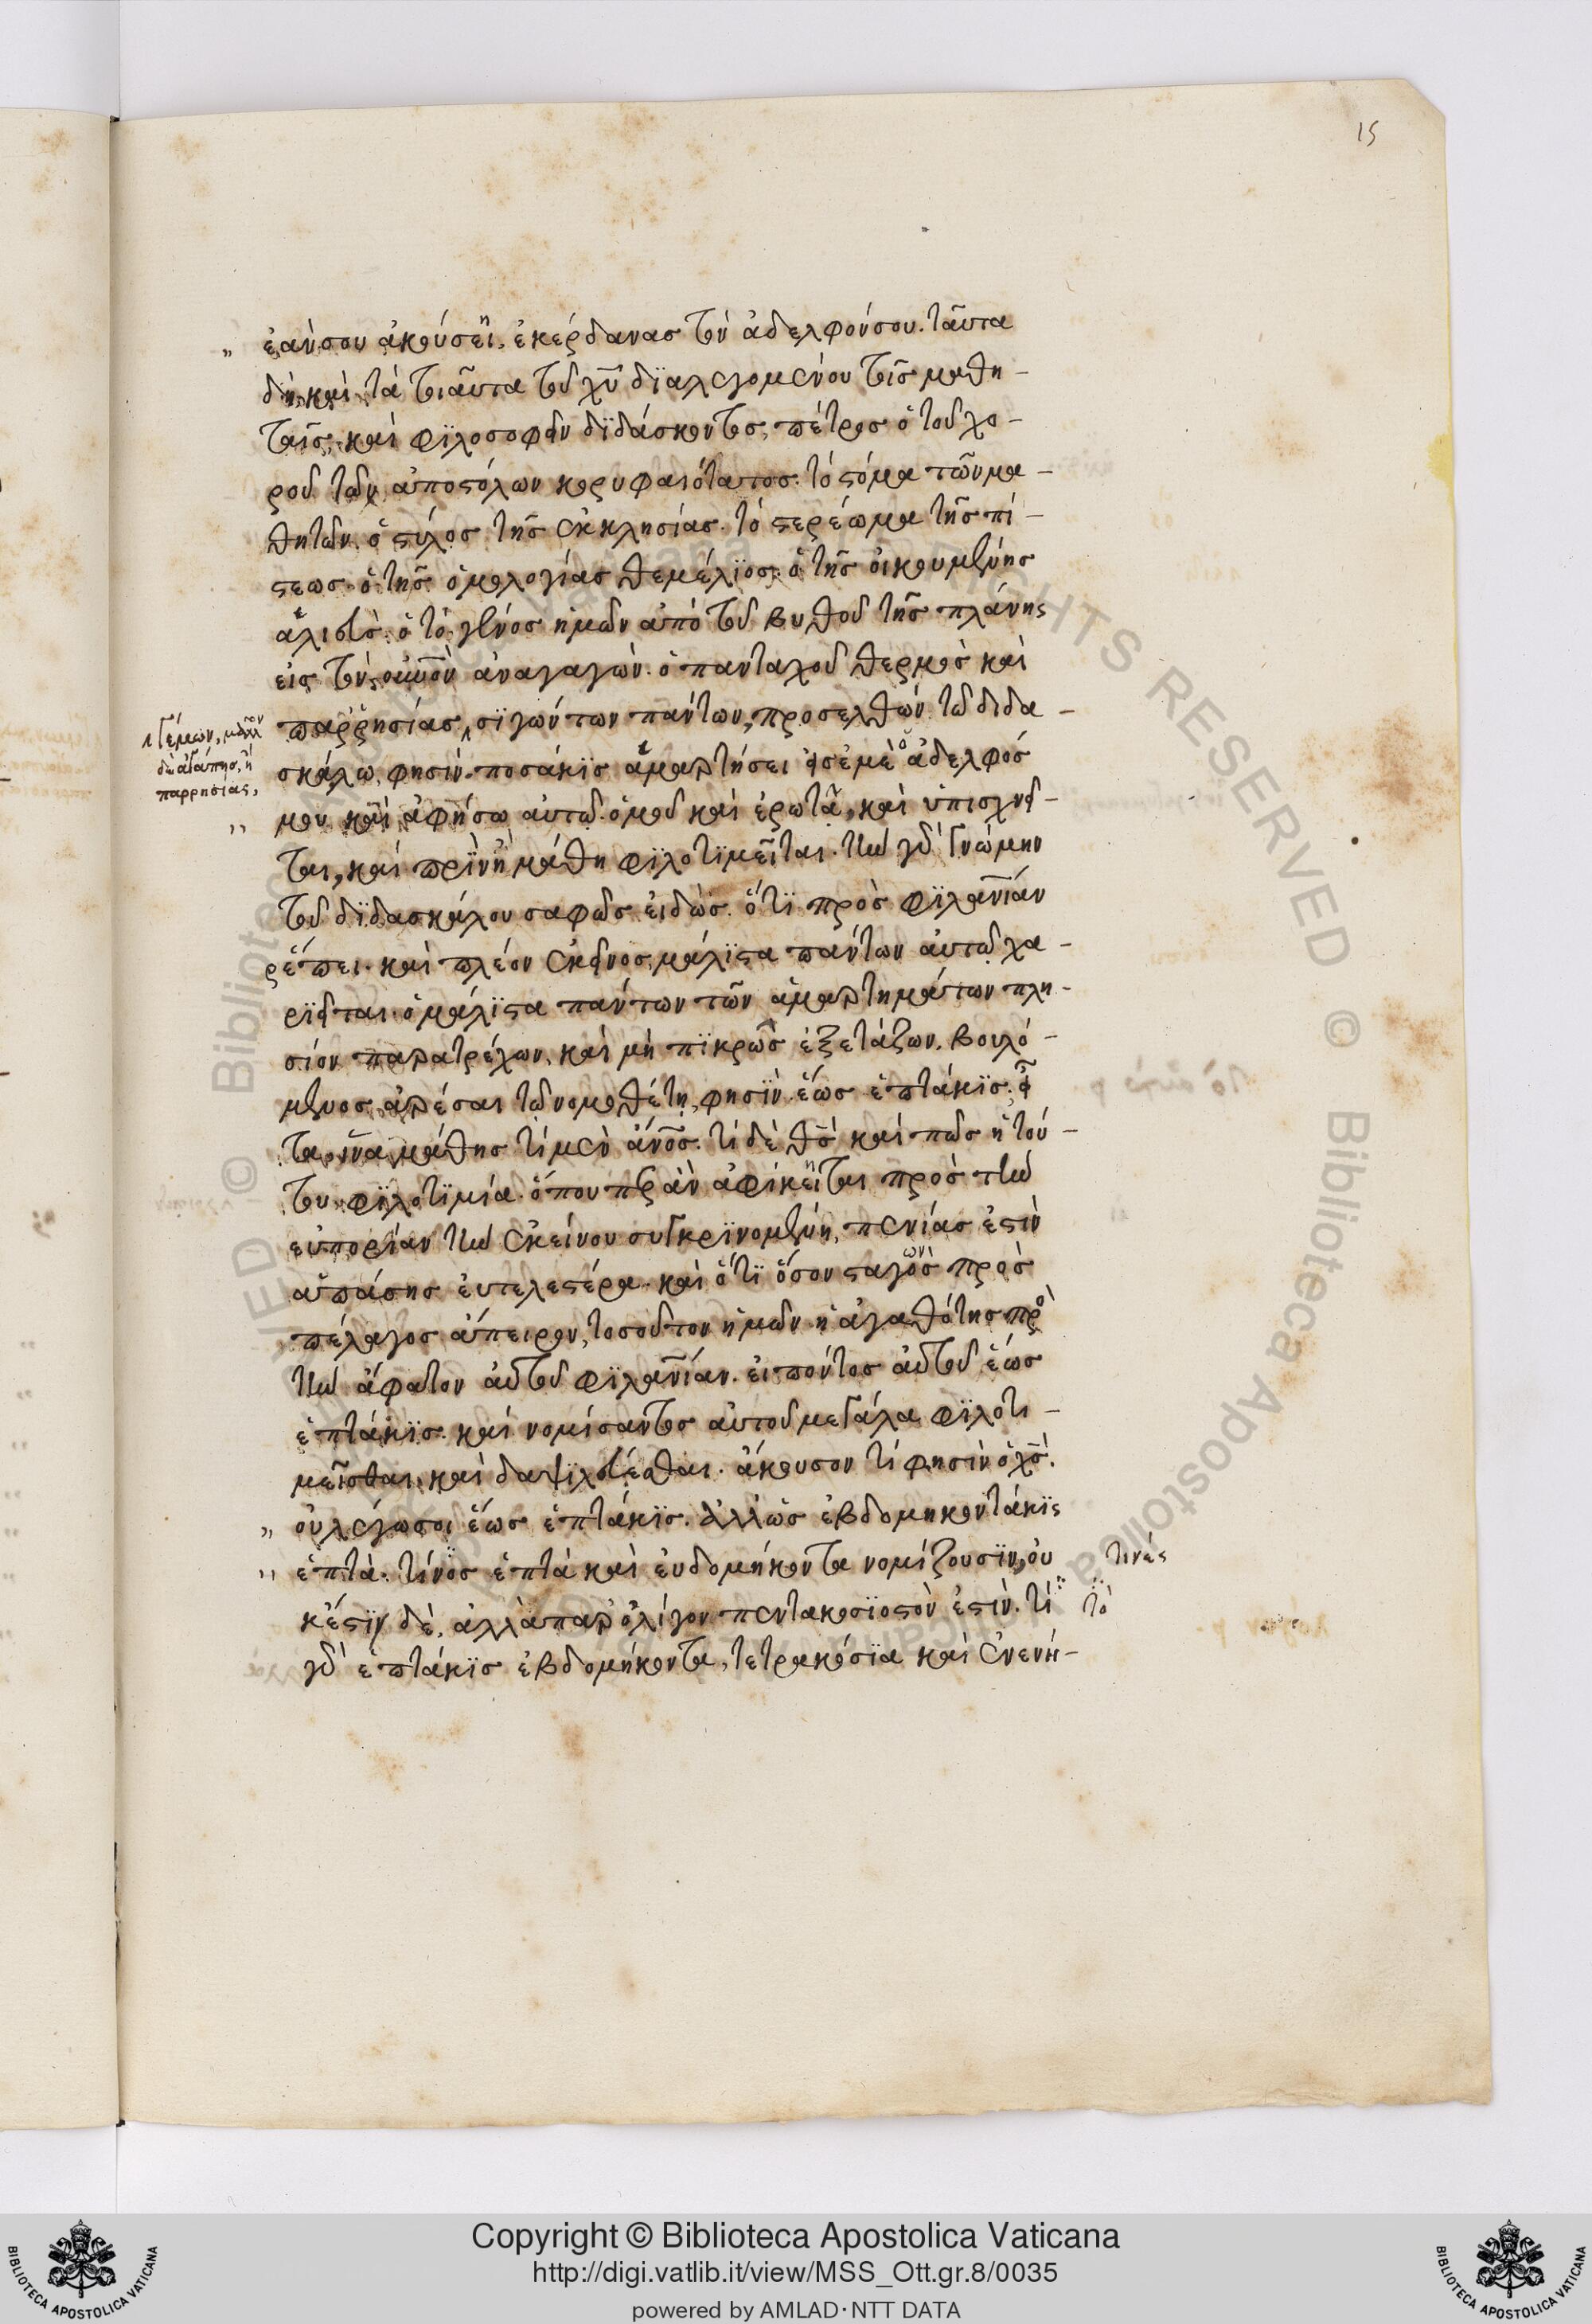 15
„ ἐάν σου ἀκούσῃ, ἐκέρδανας τὸν ἀδελφόν σου. ταῦτα
δὴ καὶ τὰ τοιαῦτα τοῦ χῦ διαλεγομένου τοῖς μαθη-
ταῖς, καὶ φιλοσοφεῖν διδάσκοντος, πέτρος ὁ τοῦ χο-
ροῦ τῶν ἀποστόλων κορυφαιότατος. τὸ στόμα τῶν μα-
θητῶν. ὁ στύλος τῆς ἐκκλησίας. τὸ στερέωμα τῆς πί-
στεως. ὁ τῆς ὁμολογίας θεμέλιος. ὁ τῆς οἰκουμένης
ἁλιεύς. ὁ τὸ γένος ἡμῶν ἀπὸ τοῦ βυθοῦ τῆς πλάνης
εἰς τὸν οὐνὸν ἀναγαγών. ὁ πανταχοῦ θερμὸς καὶ
παρρησίας, σιγώντων πάντων, προσελθὼν τῷ διδα-
γέμων, μᾶλλον
δὲ ἀγάπης, ἢ
παρρησίας,
σκάλῳ, φησίν. ποσάκις ἁμαρτήσει εἰς ἐμὲ ὁ ἀδελφός
„ μου καὶ ἀφήσω αὐτῷ. ὁμοῦ καὶ ἐρωτᾷ, καὶ ὑπισχνεῖ-
ται, καὶ πρὶν ἢ μάθῃ φιλοτιμεῖται. τὴν γὰρ γνώμην
τοῦ διδασκάλου σαφῶς εἰδὼς. ὅτι πρὸς φιλανίαν
ῥέπει. καὶ πλέον ἐκεῖνος μάλιστα πάντων αὐτῷ χα-
ριεῖται. ὁ μάλιστα πάντων τῶν ἁμαρτημάτων πλη-
σίον παρατρέχων, καὶ μὴ πικρῶς ἐξετάζων. βουλό-
μενος ἀρέσαι τῷ νομοθέτῃ, φησὶν. ἕως ἑπτάκις. εἶ
τα ἵνα μάθῃς τί μὲν ἄνος. τί δὲ θς καὶ πῶς ἡ τού-
του φιλοτιμία. ὅπου περ ἂν ἀφίκηται πρὸς τὴν
εὐπορίαν τὴν ἐκείνου συγκρινομένη, πενίας ἐστὶν
ἁπάσης εὐτελεστέρα. καὶ ὅτι ὅσον σταγὼν πρὸς
πέλαγος ἄπειρον, τοσοῦτον ἡμῶν ἡ ἀγαθότης πρὸς
τὴν ἄφατον αὐτοῦ φιλανίαν. εἰπόντος αὐτοῦ ἕως
ἑπτάκις. καὶ νομίσαντος αὐτοῦ μεγάλα φιλοτι-
μεῖσθαι, καὶ δαψιλεύεσθαι. ἄκουσον τί φησὶν ὁ χς.
„ οὐ λέγω σοι ἕως ἑπτάκις. ἀλλ' ἕως ἑβδομηκοντάκις
„ ἑπτά. τινὲς ἑπτὰ καὶ εὐδομήκοντα νομίζουσιν, οὐ
τινές
κ ἔστιν δὲ, ἀλλὰ παρ' ὀλίγον πεντακοσιοστὸν ἐστίν. τί
τὸ
γὰρ ἑπτάκις ἑβδομήκοντα, τετρακόσια καὶ ἐνενή-
Copyright © Biblioteca Apostolica Vaticana
http://digi.vatlib.it/view/MSS_Ott.gr.8/0035
powered by AMLAD·NTT DATA
BIBLIOTECA APOSTOLICA VATICANA
BIBLIOTECA APOSTOLICA VATICANA